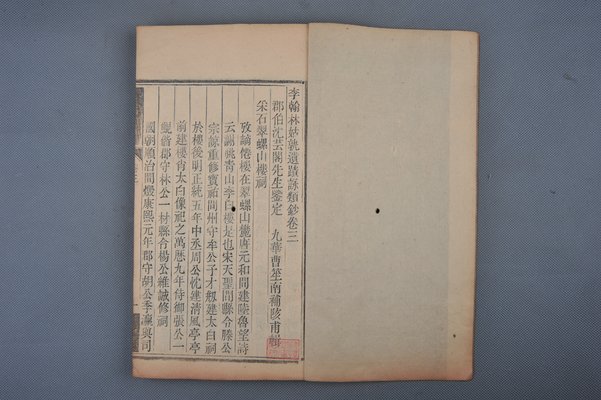 李翰林姑孰遺蹟詠類鈔卷三
郡伯沈芸閣先生鑒定　九華曹笙南補陔甫輯
采石翠螺山樓祠
攷謫僊樓在翠螺山麓唐元和間建陸魯望詩
云謝朓青山李白樓是也宋天聖間縣令滕公
宗諒重修寶祐間州守牟公子才剏建太白祠
於樓後明正統五年中丞周公忱建清風亭亭
前建樓肖太白像祀之萬厯九年侍御張公一
鯤晉郡守林公一材縣令楊公維誠修祠
國朝順治間燬康熙元年郡守胡公季瀛與司